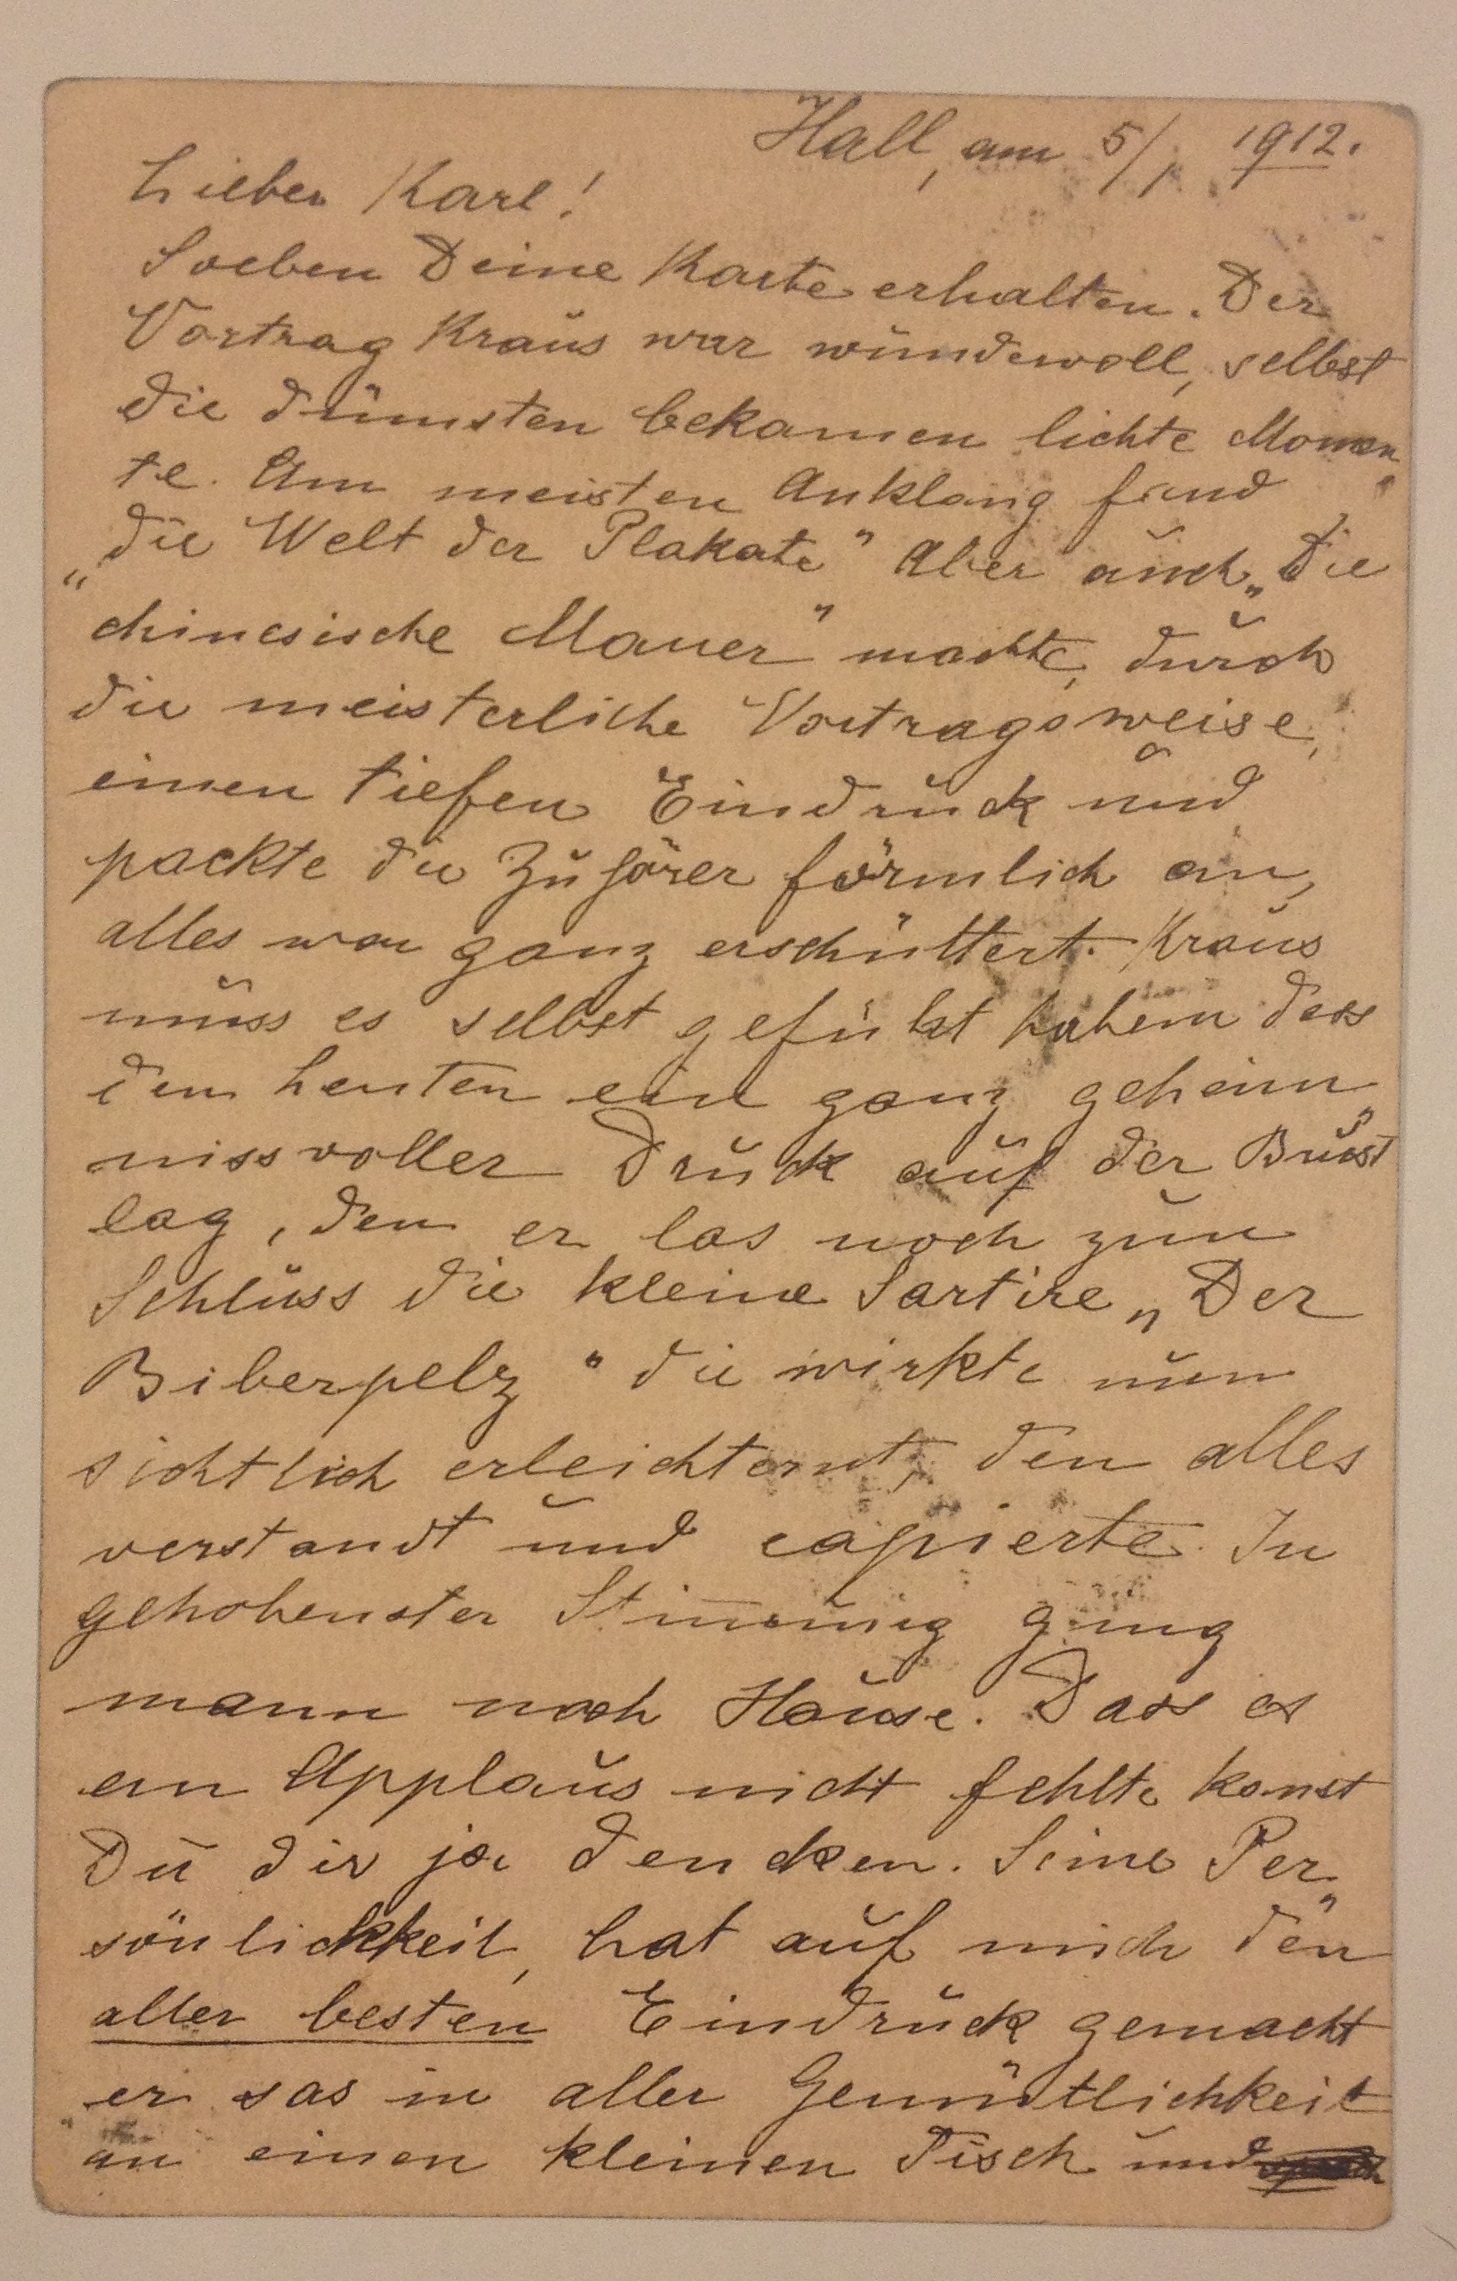 Hall, am 5/1. 1912.
Lieber Karl!
Soeben Deine Karte erhalten. Der
Vortrag Kraus war wundervoll, selbst
die dümsten bekamen lichte Momen„
te. Am meisten Anklang fand
„die Welt der Plakate" Aber auch „Die
chinesische Mauer" machte, durch
die meisterliche Vortragsweise,
einen tiefen Eindruck und
packte die Zuhörer förmlich an,
alles war ganz erschüttert. Kraus
muss es selbst gefült habem dass
den Leuten ein ganz geheim„
nissvoller Druck auf der Brust
lag, den er las noch zum
Schluss die kleine Sartire „Der
Biberpelz" die wirkte nun
sichtlich erleichternt, den alles
verstandt und capierte. In
gehobenster Stimmung ging
mann nach Hause. Dass es
an Applaus nicht fehlte kanst
Du dir ja dencken. Seine Per„
sönlichkkeit, hat auf mich den
aller besten Eindruck gemacht
er sas in aller Gemütlichkeit
an einen kleinen Tisch und